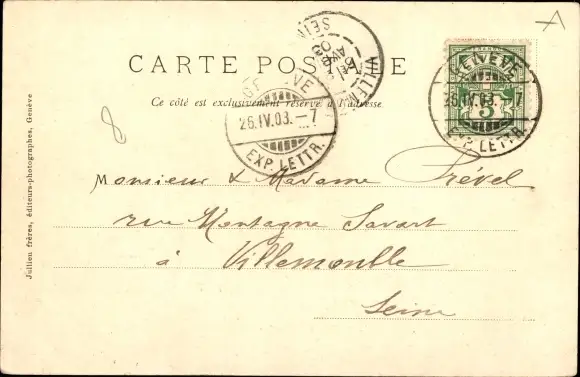 CARTE POSTALE
Ce côté est exclusivement réservé à l'adresse.
GENÈVE
26.IV.03.–7
EXP. LETTR.
HELVETIA
5
GENÈVE
26.IV.03.–7
EXP. LETTR.
Monsieur & Madame Prével
rue Montagne Savart
à Villemomble
Seine
Jullien frères, éditeurs-photographes, Genève